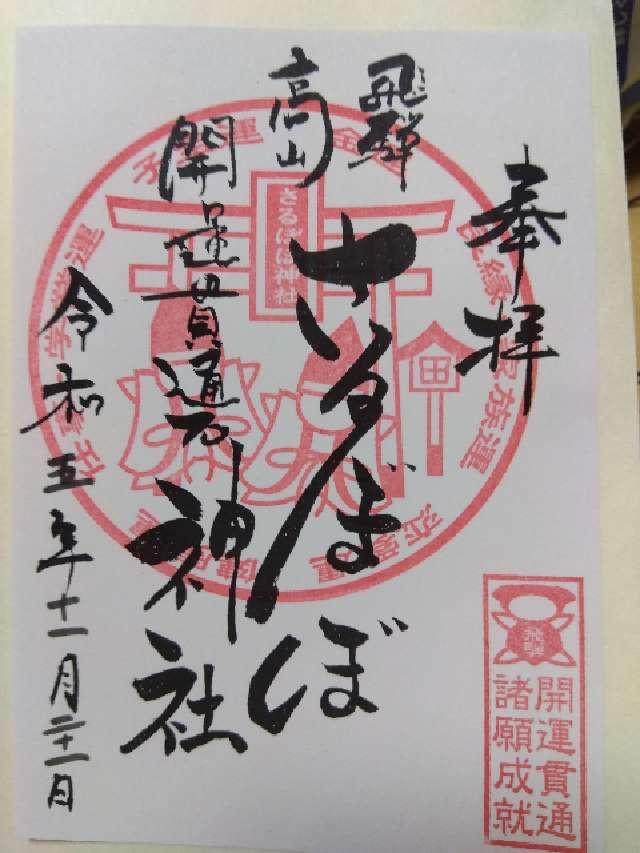 奉拝
飛騨
高山
さるぼぼ
神社
開運貫通石
令和五年十一月二十一日
さるぼぼ神社
金運
家族運
恋愛運
子宝運
飛騨
開運貫通
諸願成就